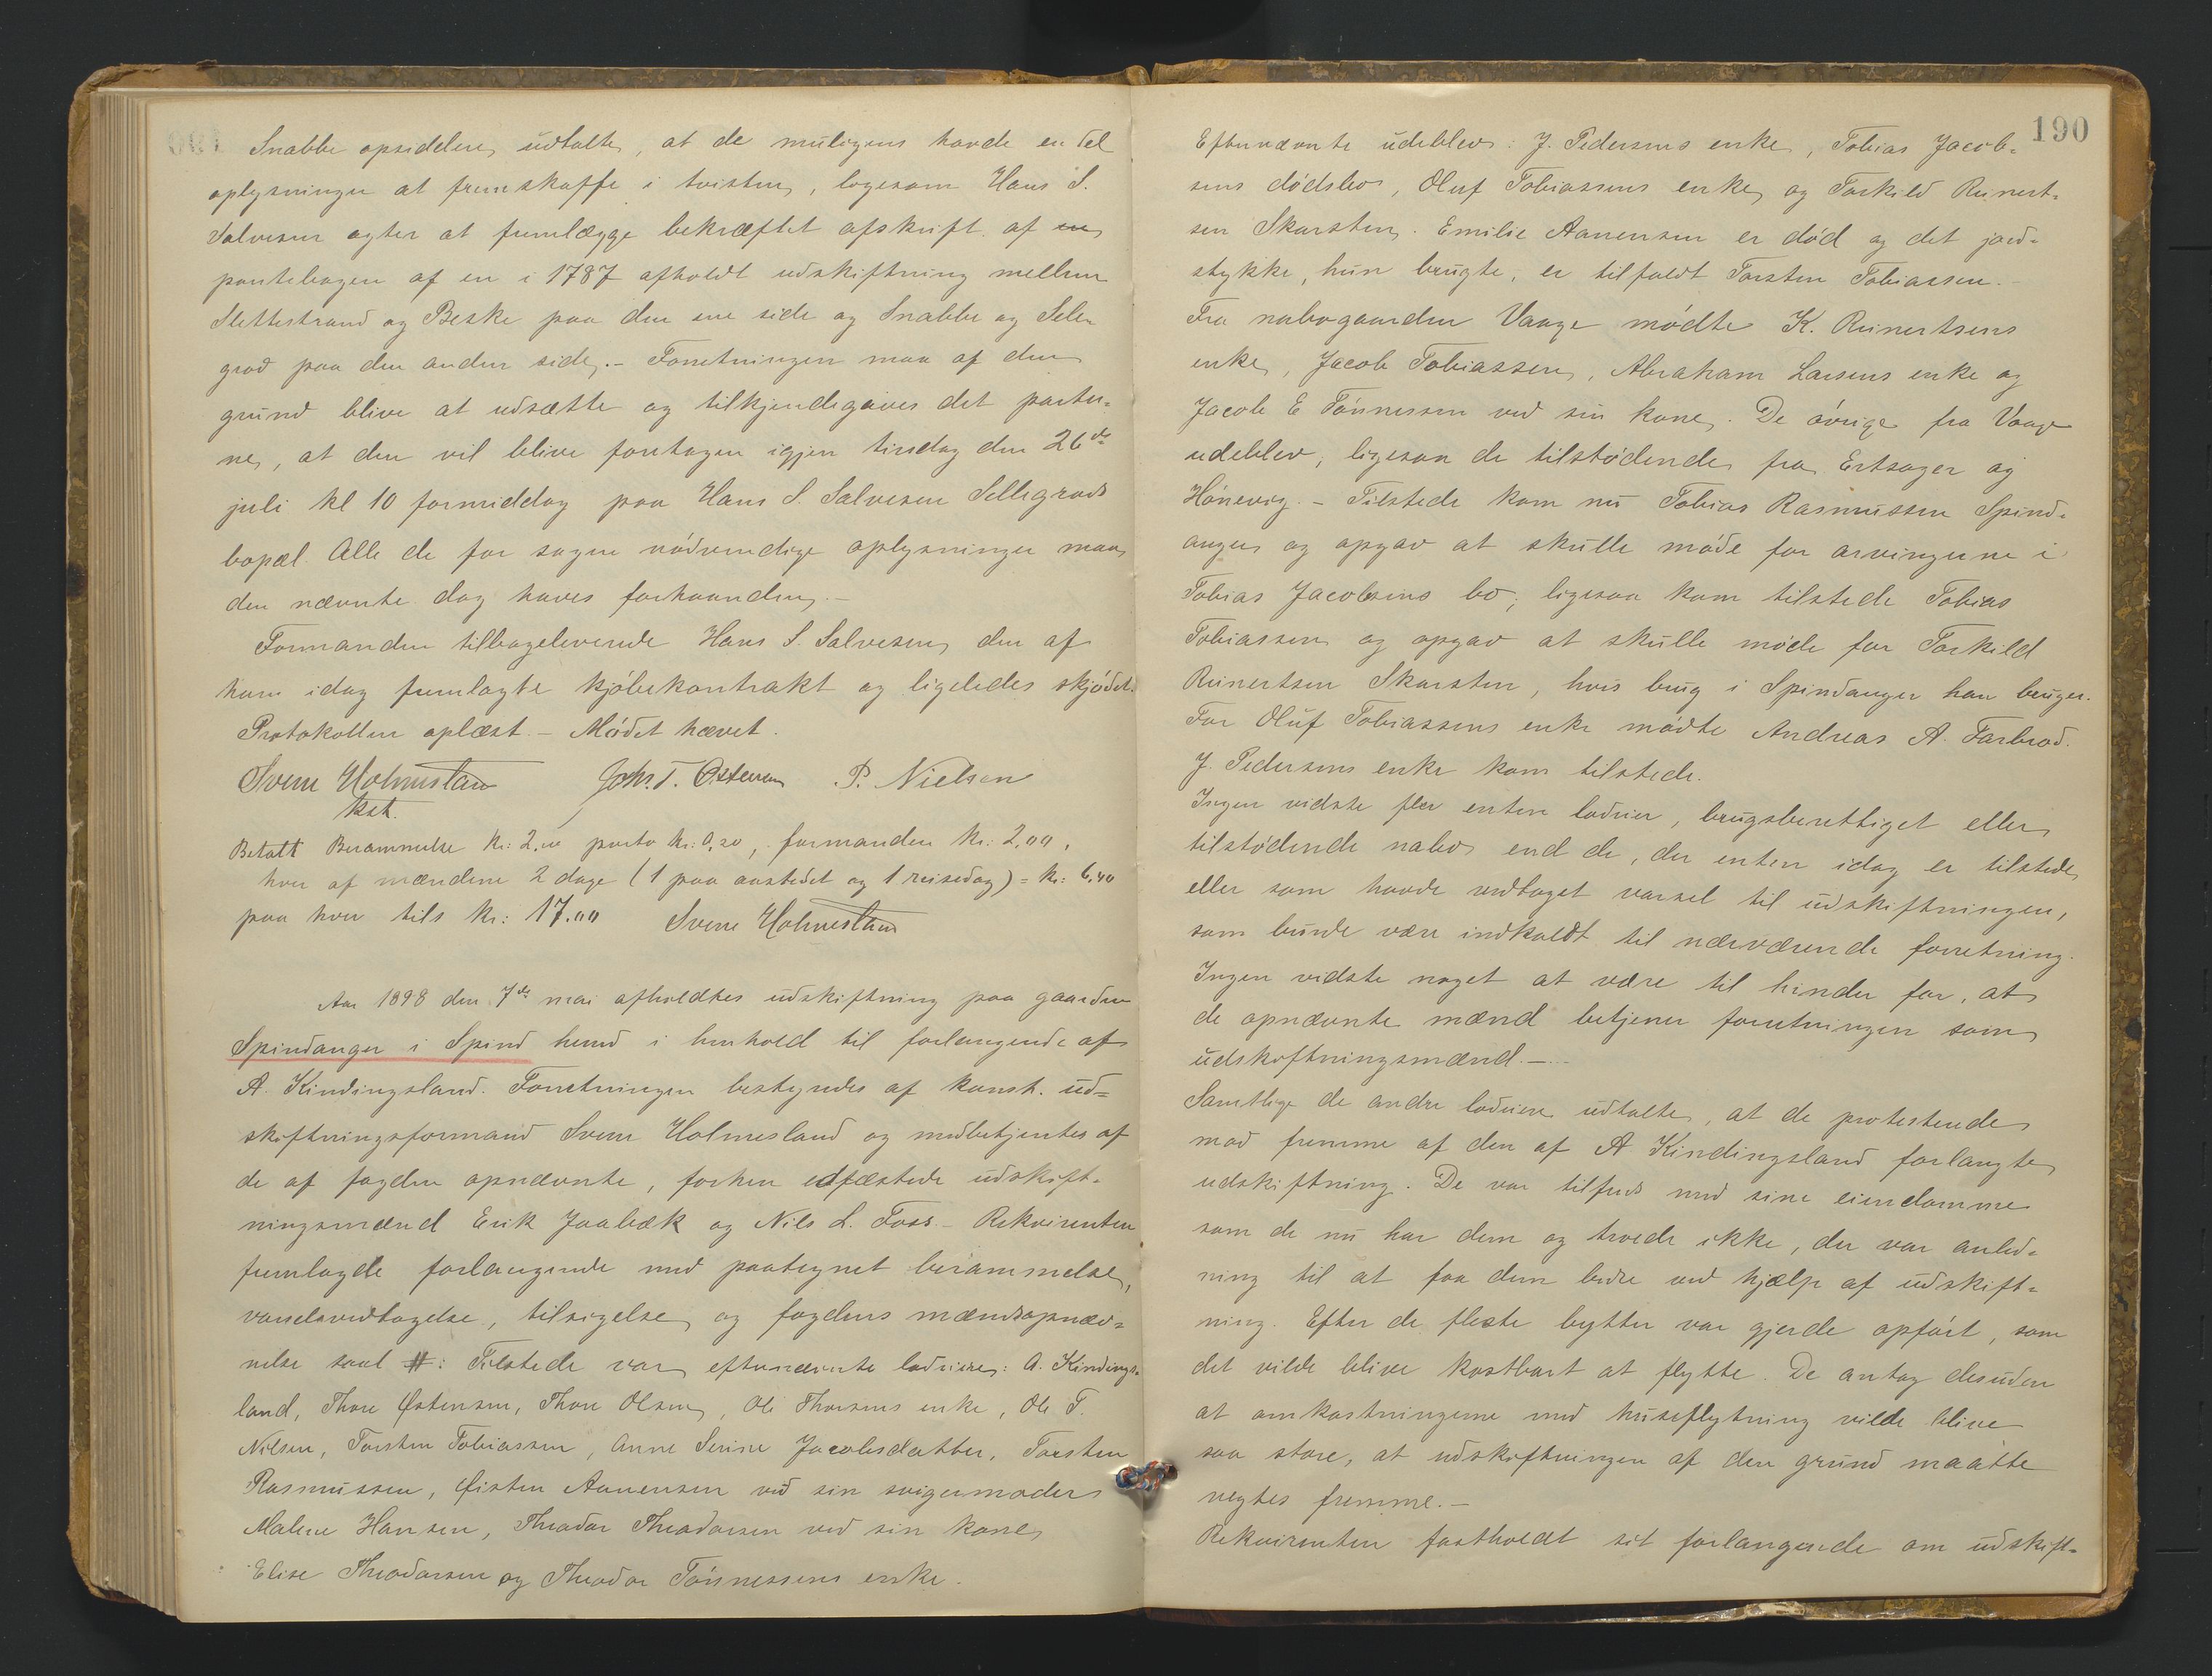 Snabbe opsiddere, udtalte, at de muligens havde en del
oplysninger at fremskaffe i tvisten, ligesom Hans S.
Salvesen agter at fremlægge bekræftet afskrift af en
pantebogen af en i 1787 afholdt udskiftning mellem
Slettestrand og Beske paa den ene side og Snabbe og Sele-
grad paa den anden side. – Forretningen maa af den
grund blive at udsætte og tilkjendegives det parter-
ne, at den vil blive foretagen igjen tirsdag den 26de
juli kl 10 formiddag paa Hans S. Salvesen Sellegrads
bopæl. Alle de for sagen nødvendige oplysninger maa
den nævnte dag haves forhaanden. –
Formanden tilbageleverede Hans S. Salvesen den af
ham idag fremlagte kjøbekontrakt og ligeledes skjødet.
Protokollen oplæst. – Mødet hævet.
Svenn Holmesland Johs. T. Østensen P. Nielsen
kst.
Betalt Berammelse kr: 2.00 porto kr: 0,20, formanden kr: 2,00,
hver af mændene 2 dage (1 paa aastedet og 1 reisedag) = kr: 6,40
paa hver tils kr: 17.00 Svenn Holmesland
Aar 1898 den 7de mai afholdtes udskiftning paa gaarden
Spindanger i Spind herred i henhold til forlangende af
A. Kindingsland. Forretningen bestyredes af konst. ud-
skiftningsformand Svenn Holmesland og medbetjentes af
de af fogden opnævnte, forhen edfæstede udskift-
ningsmænd Erik Jaabæk og Nils L. Foss. – Rekvirenten
fremlagde forlangende med paategnet berammelse,
varselsvedtagelse, tilsigelse og fogdens mændsopnæv-
nelse saal #: Tilstede var efternævnte lodeiere: A. Kindings-
land, Thore Østensen, Thore Olsen, Ole Thorsens enke, Ole T.
Nilsen, Torsten Tobiassen, Anne Serine Jacobsdatter, Torsten
Rasmussen, Øisten Aanensen ved sin svigermoder
Malene Hansen, Theodor Theodorsen ved sin kone
Elise Theodorsen og Theodor Tønnessens enke.
190
Efternævnte udeblev: J. Pedersens enke, Tobias Jacob-
sens dødsbo, Oluf Tobiassens enke, og Torkild Reinert-
sen Skarsten. Emilie Aanensen er død og det jord-
stykke, hun brugte, er tilfaldt Torsten Tobiassen. –
Fra nabogaarden Vaage mødte K. Reinertsens
enke, Jacob Tobiassen, Abraham Larsens enke og
Jacob E Tønnessen ved sin kone. De øvrige fra Vaage
udeblev, ligesaa de tilstødende fra Ertsager og
Hønevig. – Tilstede kom nu Tobias Rasmussen Spind-
anger og opgav at skulle møde for arvingerne i
Tobias Jacobsens bo; ligesaa kom tilstede Tobias
Tobiassen og opgav at skulle møde for Torkild
Reinertsen Skarsten, hvis brug i Spindanger han bruger.
For Oluf Tobiassens enke mødte Andreas A. Farbrod.
J. Pedersens enke kom tilstede.
Ingen vidste fler enten lodeier, brugsberettiget eller
tilstødende nabo end de, der enten idag er tilstede
eller som havde vedtaget varsel til udskiftningen,
som burde være indkaldt til nærværende forretning.
Ingen vidste noget at være til hinder for, at
de opnævnte mænd betjener forretningen som
udskiftningsmænd. –
Samtlige de andre lodeiere udtalte, at de protesterede
mod fremme af den af A Kindingsland forlangte
udskiftning. De var tilfreds med sine eiendomme
som de nu har dem og troede ikke, der var anled-
ning til at faa dem bedre ved hjælp af udskift-
ning. Efter de fleste bytter var gjerde opført, som
det vilde blive kostbart at flytte. De antog desuden
at omkostningerne med huseflytning vilde blive
saa store, at udskiftningen af den grund maatte
negtes fremme. –
Rekvirenten fastholdt sit forlangende om udskift-